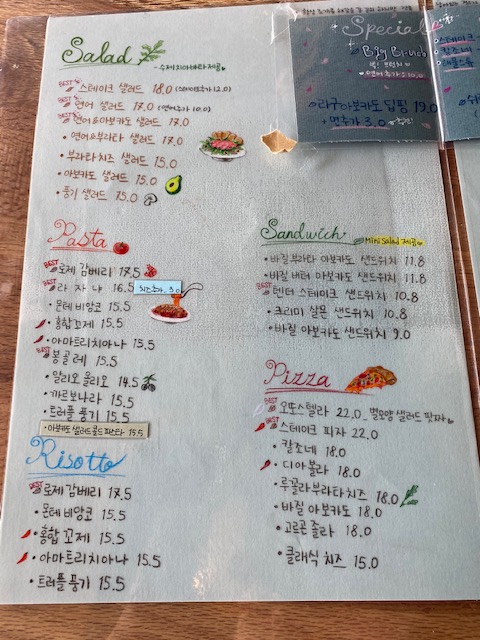 Salad
- 수제치아바타 제공
BEST 스테이크 샐러드 18.0 (스테이크추가 12.0)
BEST 연어 샐러드 17.0 (연어추가 10.0)
BEST 연어&아보카도 샐러드 17.0
• 연어&부라타 샐러드 17.0
• 부라타 치즈 샐러드 15.0
• 아보카도 샐러드 15.0
• 풍기 샐러드 15.0
Pasta
BEST 로제 감베리 17.5
BEST 라자냐 16.5 치즈추가 3.0
• 몬테 비앙코 15.5
• 홍합꼬제 15.5
• 아마트리치아나 15.5
BEST 봉골레 15.5
• 알리오 올리오 14.5
• 까르보나라 15.5
• 트러플 풍기 15.5
• 아보카도 샐러드 콜드 파스타 15.5
Risotto
BEST 로제 감베리 17.5
• 몬테 비앙코 15.5
• 홍합 꼬제 15.5
• 아마트리치아나 15.5
• 트러플 풍기 15.5
Special
Big Brunch
빅 브런치
• 라구아보카도 딥핑 19.0
• 면추가 3.0
• 스테이크
• 칼조네
Sandwich Mini Salad 제공
• 바질 부라타 아보카도 샌드위치 11.8
• 바질 버터 아보카도 샌드위치 11.8
BEST 텐더 스테이크 샌드위치 10.8
• 크리미 살몬 샌드위치 10.8
• 바질 아보카도 샌드위치 9.0
Pizza
BEST 오또스텔라 22.0 별모양 샐러드 핏짜
BEST 스테이크 피자 22.0
• 칼조네 18.0
• 디아볼라 18.0
• 루꼴라부라타치즈 18.0
• 바질 아보카도 18.0
• 고르곤 졸라 18.0
• 클래식 치즈 15.0